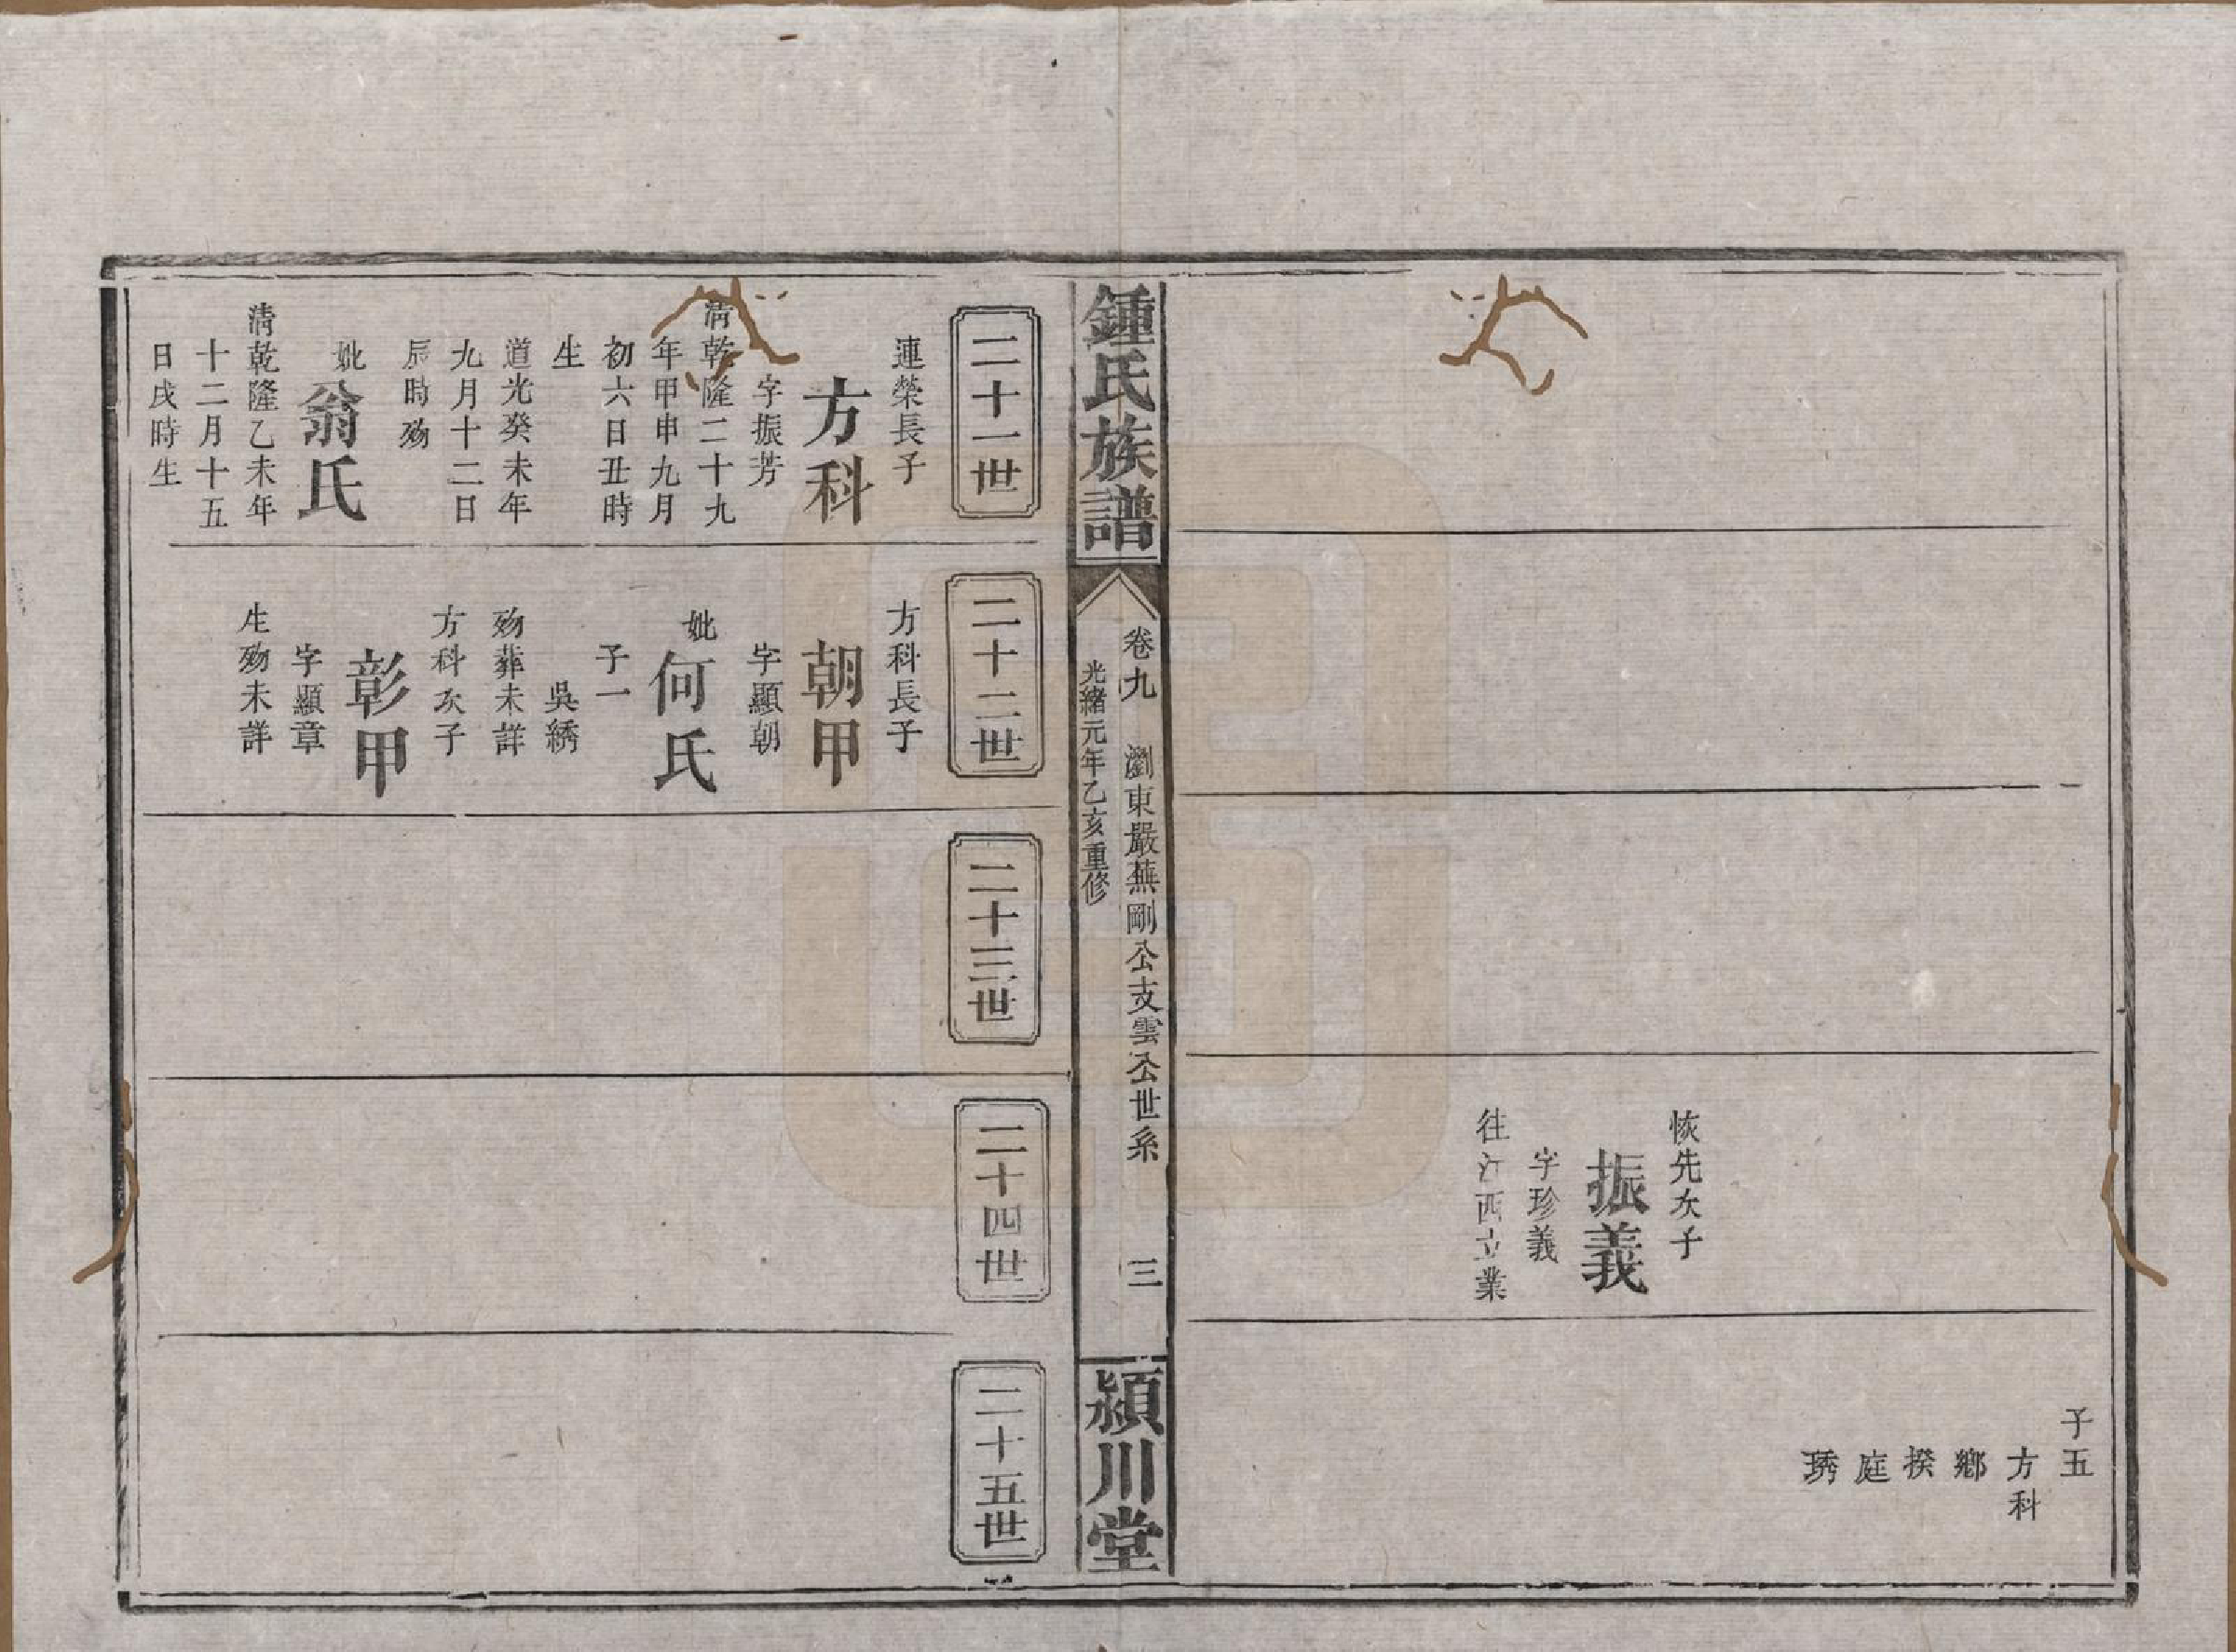 恢先次子
振義
字珍義
往江西立業
子五
方科
鄉
揆
庭
琇
鍾氏族譜
卷九 瀏東嚴蕪剛公支雲公世系 三
光緒元年乙亥重修
潁川堂
二十一世
連榮長子
方科
字振芳
清乾隆二十九
年甲申九月
初六日丑時
生
道光癸未年
九月十二日
辰時殁
妣翁氏
清乾隆乙未年
十二月十五
日戌時生
二十二世
方科長子
朝甲
字顯朝
妣何氏
子一
吳綉
殁葬未詳
方科次子
彰甲
字顯章
生殁未詳
二十三世
二十四世
二十五世